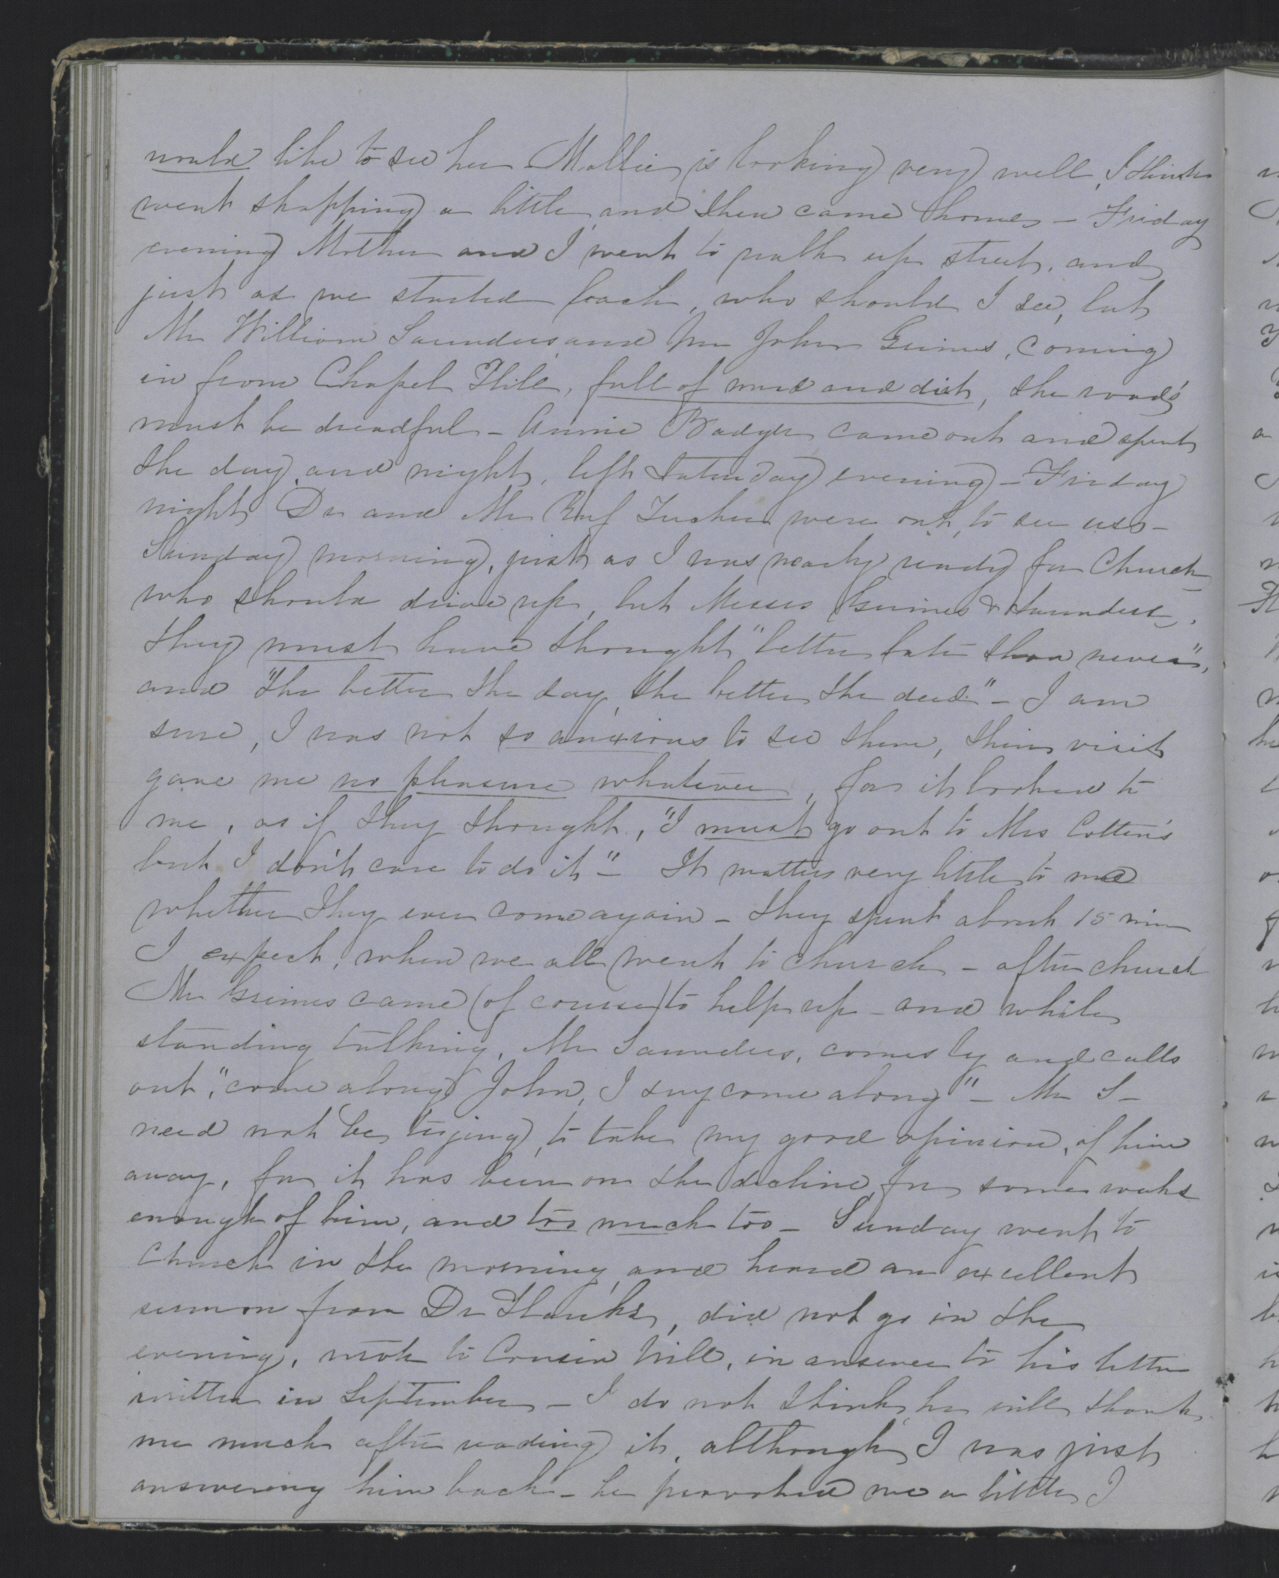 would like to see her - Mollie is looking very well, I think
went shopping a little and then came home - Friday
evening Mother and I went to walk up street, and
just as we started back, who should I see, but
Mr William Saunders, and Mr John Grimes, coming
in from Chapel Hill, full of mud and dirt, the roads
must be dreadful - Annie Badger came out and spent
the day, and night, left Saturday evening - Friday
night Dr and Mr Ruf Tucker were out, to see us -
Sunday morning, just as I was nearly ready for Church
who should drive up, but Messrs Grimes & Saunders,
they must have thought "better late than never",
and "the better the day, the better the deed" - I am
sure, I was not so anxious to see them, their visit
gave me no pleasure whatever, for it looked to
me, as if they thought, "I must go out to Mrs Cotten's
but I don't care to do it" - It matters very little to me
whether they ever come again - they spent about 15 min
I expect, when we all went to church - after church
Mr Grimes came (of course) to help up - and while
standing talking, Mr Saunders, comes by and calls
out, "come along John, I say come along" - Mr S -
need not be trying, to take my good opinion, of him
away, for it has been on the decline for some weeks
enough of him, and too much too - Sunday went to
Church in the morning, and heard an excellent
sermon from Dr Hawks, did not go in the
evening, wrote to Cousin Will, in answer to his letter
written in September - I do not think he will thank
me much after reading it, although I was just
answering him back - he provoked me a little, I